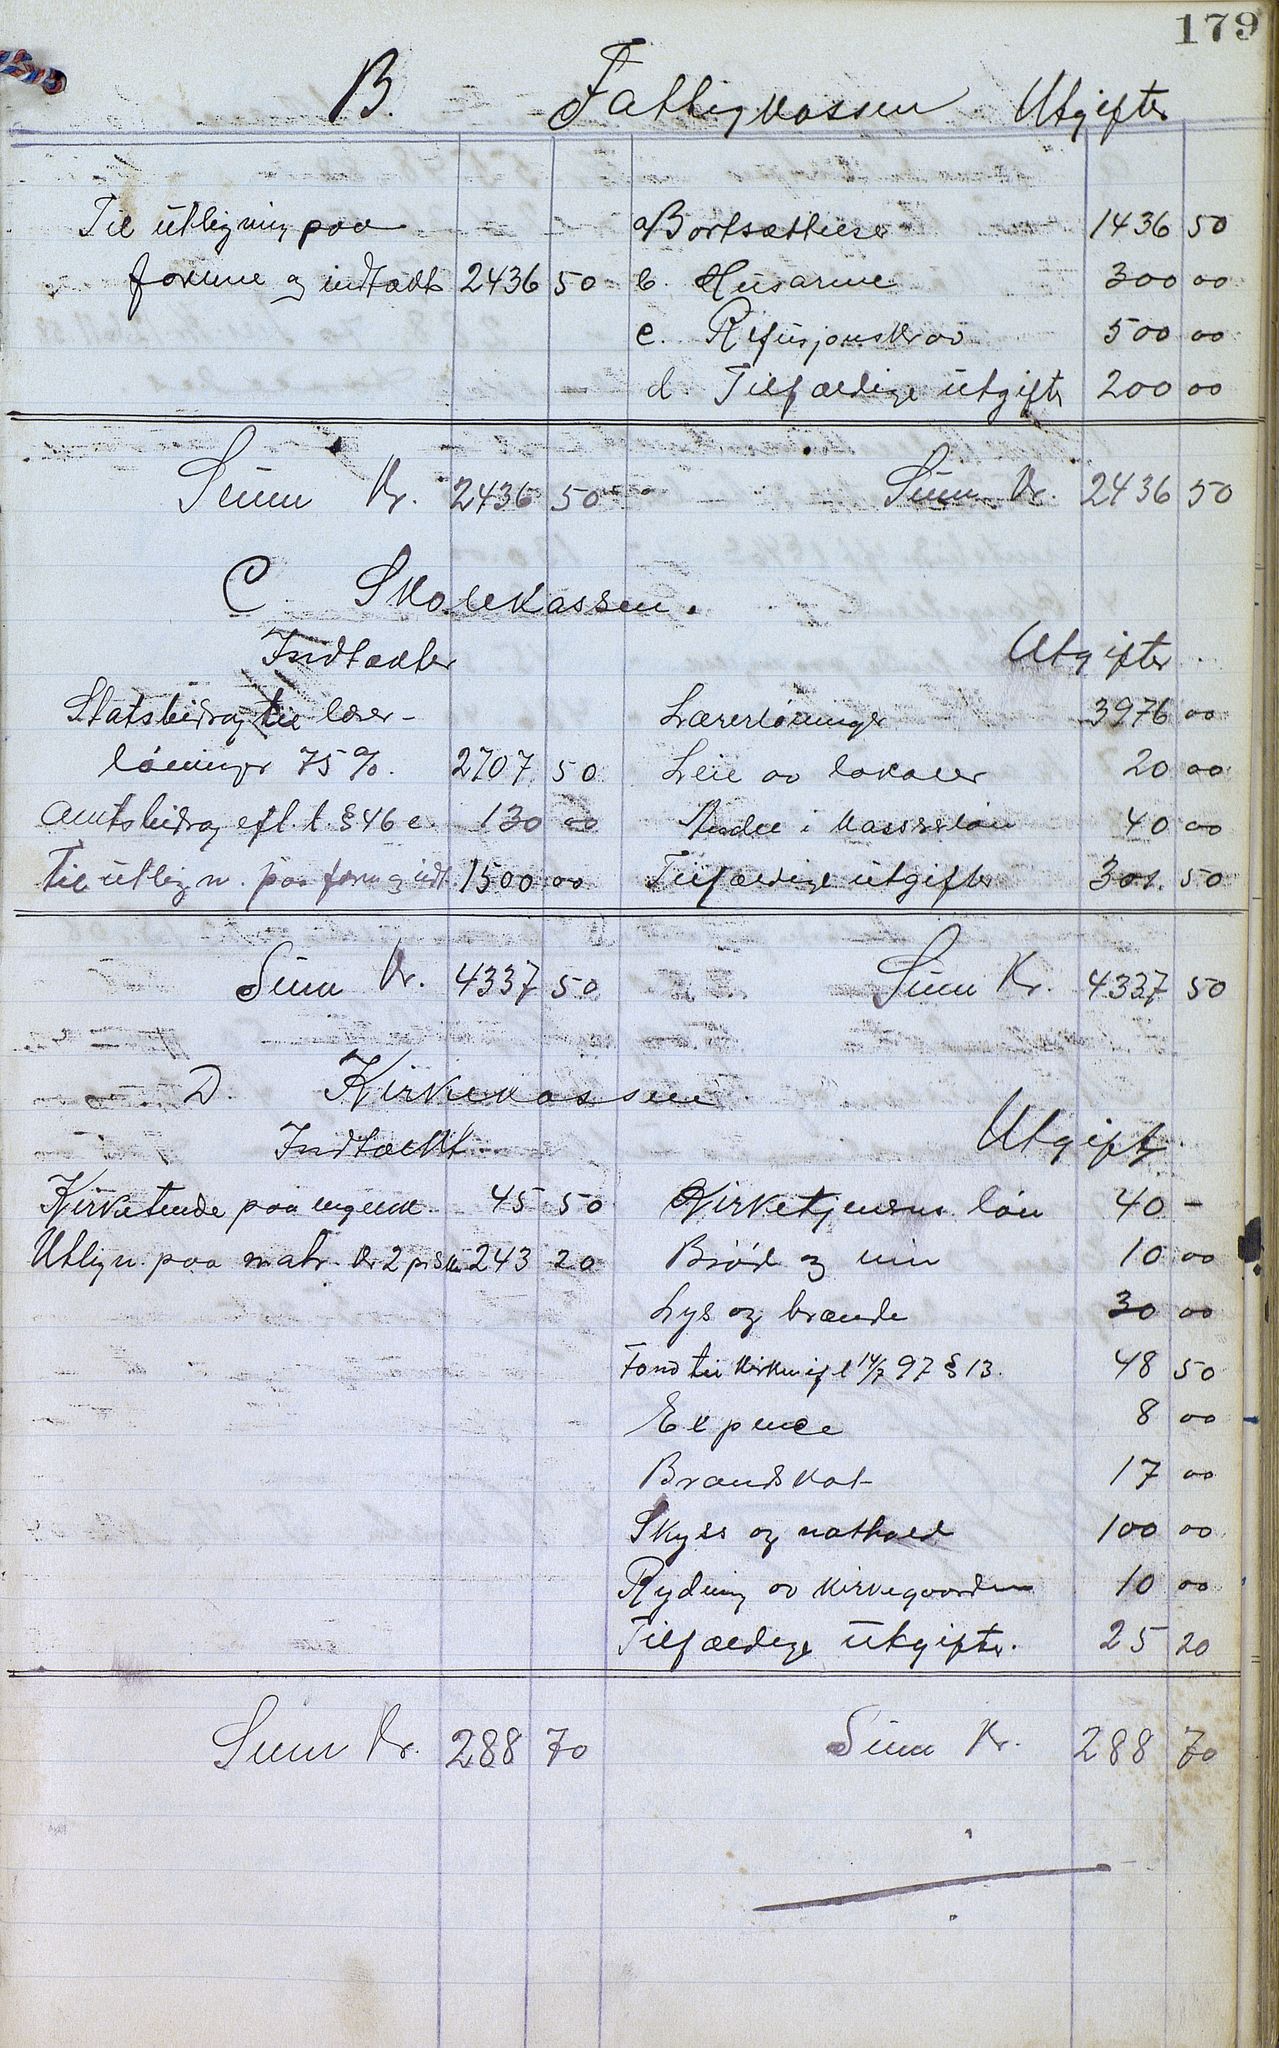 179
B. Fattigkassen Utgifter
Til utligning paa a Bortsættelse 1436 50
formue og indtækt 2436 50 b. Husarme 300 00
c. Refusjonskrav 500 00
d Tilfældige utgifter 200 00
Sum Kr. 2436 50 Sum Kr. 2436 50
C Skolekassen.
Indtækter Utgifter
Statsbidrag til lærer- Lærerlønninger 3976 00
lønninger 75%. 2707 50 Leie av lokaler 20 00
Amtsbidrag efl. l. § 46 c. 130 00 Andel i kassereløn 40 00
Til utlign. paa form og indt. 1500 00 Tilfældige utgifter 301. 50
Sum Kr. 4337 50 Sum Kr. 4337 50
D. Kirkekassen
Indtækt Utgift
Kirketiende paa 45 50 Kirketjenerens løn 40 -
Utlign. paa matr. Kr 2 pr Skm 243 20 Brød og vin 10 00
Lys og brænde 30 00
Fond til kirken ifl 14/7 97 § 13. 48 50
Expence 8 00
Brandskat 17 00
Skyss og nathold 100 00
Rydning av kirkegaarden 10 00
Tilfældige utgifter. 25 20
Sum Kr. 288 70 Sum Kr. 288 70